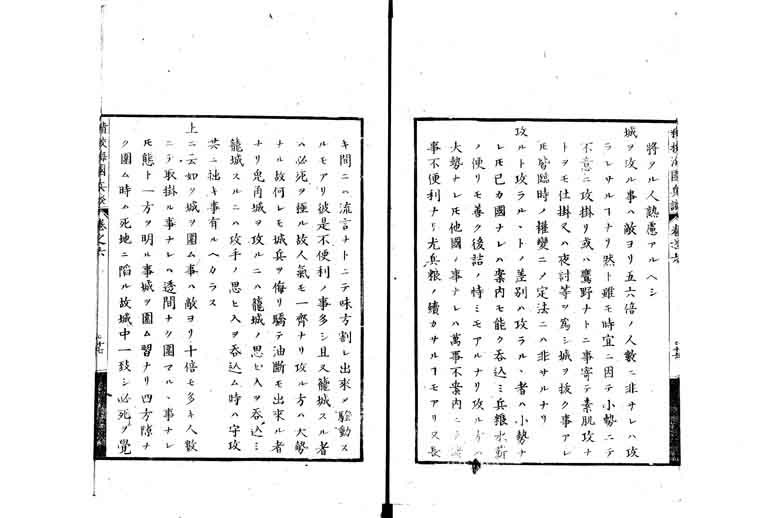 將タル人熟慮アルヘシ
城ヲ攻ル事ハ敵ヨリ五六倍ノ人數ニ非ナレハ攻
ラレサルヿナリ然ト雖モ時宜ニ因テ小勢ニテ
不意ニ攻掛リ或ハ鷹野ナトニ事寄テ素肌攻ナ
トヲモ仕掛又ハ夜討等ヲ爲シ城ヲ抜ク事アレ
𪜈皆臨時ノ權變ニノ定法ニハ非サルナリ
攻ルト攻ラル丶トノ差別ハ攻ラル丶者ハ小勢ナ
レ𪜈己カ國ナレハ案内モ能ク呑込ミ兵粮水薪
ノ便リモ善ク後詰ノ恃ミモアルナリ攻ル方ハ
大勢ナレ𪜈他國ノ事ナレハ萬事不案内ニテ
事不便利ナリ尤兵粮ノ續カサルヿモアリ又長
キ間ニハ流言ナトニテ味方割レ出來ヲ騒動ス
ルモアリ彼是不便利ノ事多シ且又籠城スル者
ハ必死ヲ極ル故人氣モ一齊ナリ攻ル方ハ大勢
ナル故何レモ城兵ヲ侮リ驕テ油斷モ出來ル者
ナリ兎角城ヲ攻ルニハ籠城ノ思ヒ入ヲ呑込ミ
籠城スルニハ攻手ノ思ヒ入ヲ呑込ム時ハ守攻
共ニ拙キ事有ルヘカラス
上ニ云如ク城ヲ圍ム事ハ敵ヨリ十倍モ多キ人數
ニテ取掛ル事ナレハ透間ナク圍マル丶事ナレ
𪜈態ト一方ヲ明ル事城ヲ圍ム習ナリ四方隙ナ
ク圍ム時ハ死地ニ陷ル故城中一致シ必死ヲ覺
卷之六